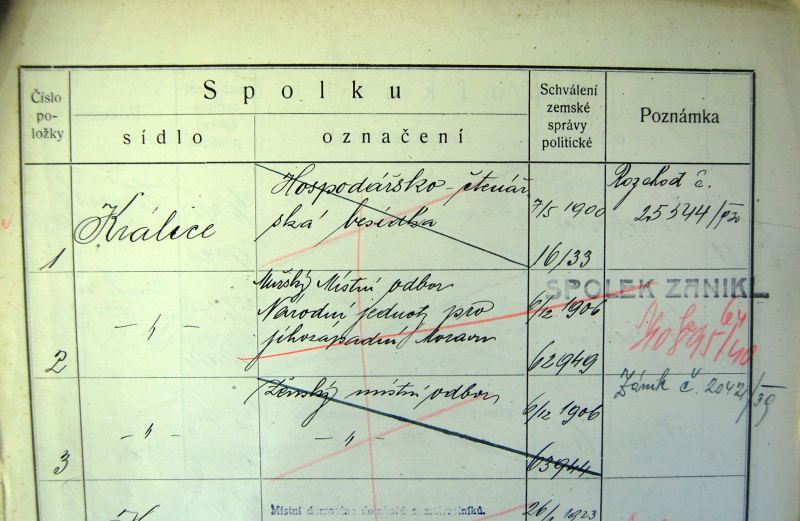 Číslo
po-
ložky
Spolku
sídlo
označení
Schválení
zemské
správy
politické
Poznámka
1
Králice
Hospodářsko-čtenář
ská besídka
7/5 1900
16133
Rozchod č.
25544/
2
— „ —
Místní odbor
Národní jednoty pro
jihozápadní Moravu
6/12 1906
62949
SPOLEK ZANIKL
3
— „ —
Ženský místní odbor
— „ —
6/12 1906
63944
Zánik č.
Místní